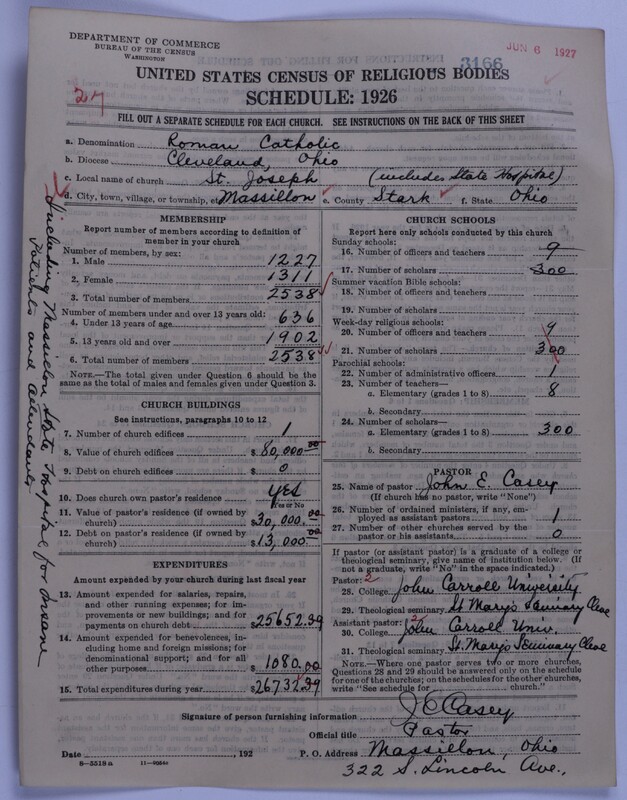 DEPARTMENT OF COMMERCE
BUREAU OF THE CENSUS
WASHINGTON
JUN 6 1927
3166
27
UNITED STATES CENSUS OF RELIGIOUS BODIES
SCHEDULE: 1926
FILL OUT A SEPARATE SCHEDULE FOR EACH CHURCH. SEE INSTRUCTIONS ON THE BACK OF THIS SHEET
a. Denomination Roman Catholic
b. Diocese Cleveland, Ohio
c. Local name of church St. Joseph (includes State Hospital)
d. City, town, village, or township, etc. Massillon e. County Stark f. State Ohio
Including Massillon State Hospital for Insane
Patients and attendants
MEMBERSHIP
Report number of members according to definition of
member in your church
Number of members, by sex:
1. Male 1227
2. Female 1311
3. Total number of members 2538
Number of members under and over 13 years old:
4. Under 13 years of age 636
5. 13 years old and over 1902
6. Total number of members 2538
NOTE.—The total given under Question 6 should be
the same as the total of males and females given under Question 3.
CHURCH BUILDINGS
See instructions, paragraphs 10 to 12
7. Number of church edifices 1
8. Value of church edifices $80,000.00
9. Debt on church edifices $ 0
10. Does church own pastor's residence yes
Yes or No
11. Value of pastor's residence (if owned by
church) $30,000.00
12. Debt on pastor's residence (if owned by
church) $13,000.00
EXPENDITURES
Amount expended by your church during last fiscal year
13. Amount expended for salaries, repairs,
and other running expenses; for im-
provements or new buildings; and for
payments on church debt $25652.39
14. Amount expended for benevolences, in-
cluding home and foreign missions; for
denominational support; and for all
other purposes $1080.00
15. Total expenditures during year $26732.39
CHURCH SCHOOLS
Report here only schools conducted by this church
Sunday schools:
16. Number of officers and teachers 9
17. Number of scholars 300
Summer vacation Bible schools:
18. Number of officers and teachers
19. Number of scholars
Week-day religious schools:
20. Number of officers and teachers 9
21. Number of scholars 300
Parochial schools:
22. Number of administrative officers 1
23. Number of teachers—
a. Elementary (grades 1 to 8) 8
b. Secondary
24. Number of scholars—
a. Elementary (grades 1 to 8) 300
b. Secondary
PASTOR
25. Name of pastor John E. Casey
(If church has no pastor, write "None")
26. Number of ordained ministers, if any, em-
ployed as assistant pastors 1
27. Number of other churches served by the
pastor or his assistants 0
If pastor (or assistant pastor) is a graduate of a college or
theological seminary, give name of institution below. (If
not a graduate, write "No" in the space indicated.)
Pastor: 2
28. College John Carroll University
29. Theological seminary St Mary's Seminary Cleve
Assistant pastor: 2
30. College John Carroll Univ.
31. Theological seminary St. Mary's Seminary Cleve
NOTE.—Where one pastor serves two or more churches,
Questions 28 and 29 should be answered only on the schedule
for one of the churches; on the schedules for the other churches,
write "See schedule for church."
Signature of person furnishing information J E Casey
Official title Pastor
Date , 192 P. O. Address Massillon, Ohio
8—5518a 11—9054c
322 S. Lincoln Ave.,